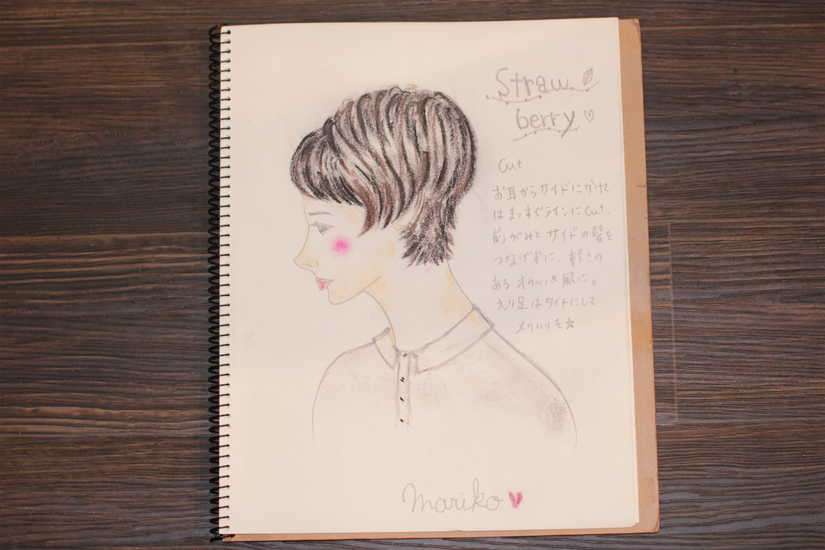 Straw
berry
Cut
お耳からサイドにかけて
はまっすぐラインにCut.
前がみとサイドの髪を
つなげずに、軽さの
ある オカッパ風に。
えり足はタイトにして
メリハリを☆
mariko